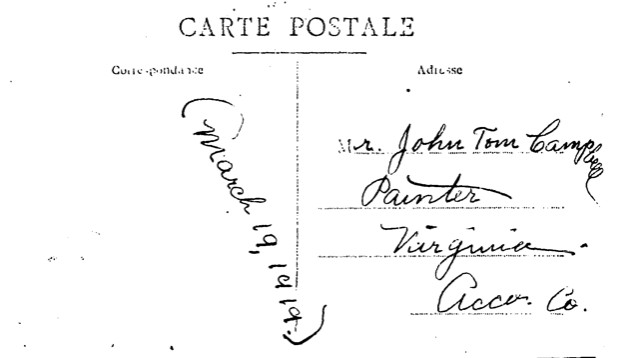 CARTE POSTALE
Correspondance
Adresse
(March 19, 1919.)
Mr. John Tom Campbell
Painter
Virginia.
Acco. Co.